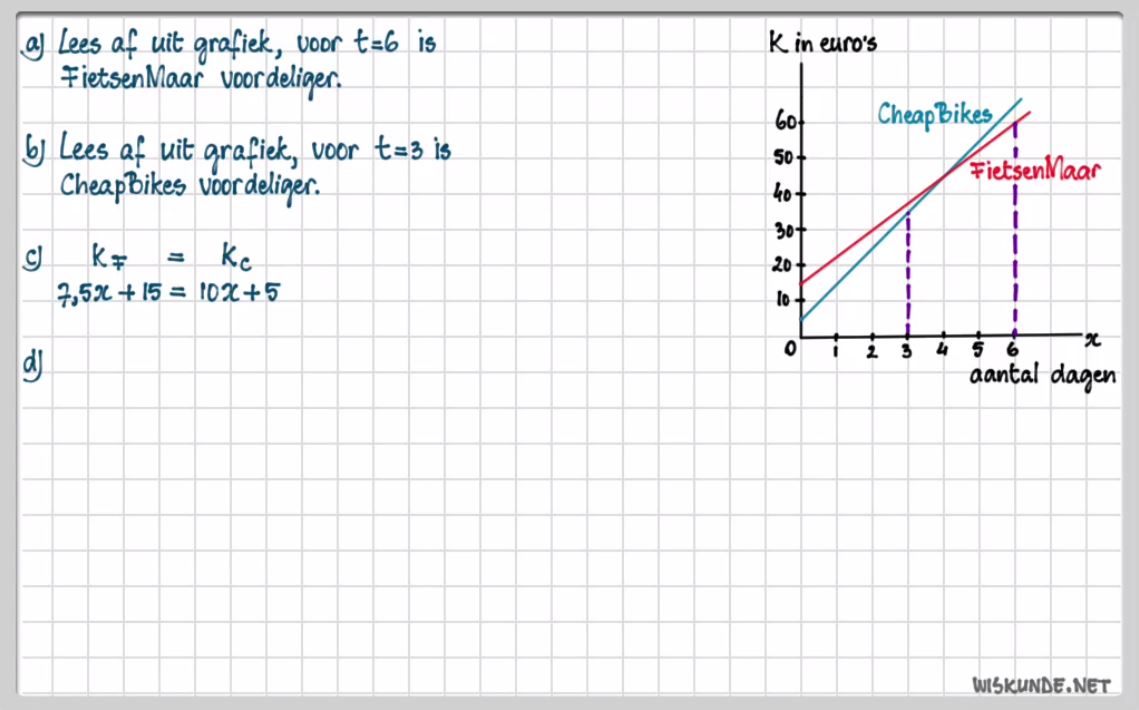 a) Lees af uit grafiek, voor t=6 is
FietsenMaar voordeliger.
b) Lees af uit grafiek, voor t=3 is
CheapBikes voordeliger.
c) KF = KC
7,5x + 15 = 10x + 5
d)
K in euro's
CheapBikes
FietsenMaar
60
50
40
30
20
10
0 1 2 3 4 5 6 x
aantal dagen
WISKUNDE.NET